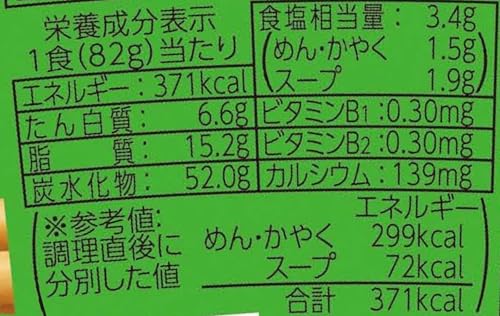 栄養成分表示
1食(82g)当たり
エネルギー：371kcal
たん白質：6.6g
脂質：15.2g
炭水化物：52.0g
食塩相当量：3.4g
(めん・かやく 1.5g
スープ 1.9g)
ビタミンB1：0.30mg
ビタミンB2：0.30mg
カルシウム：139mg
(※参考値：
調理直後に
分別した値
エネルギー
めん・かやく 299kcal
スープ 72kcal
合計 371kcal)